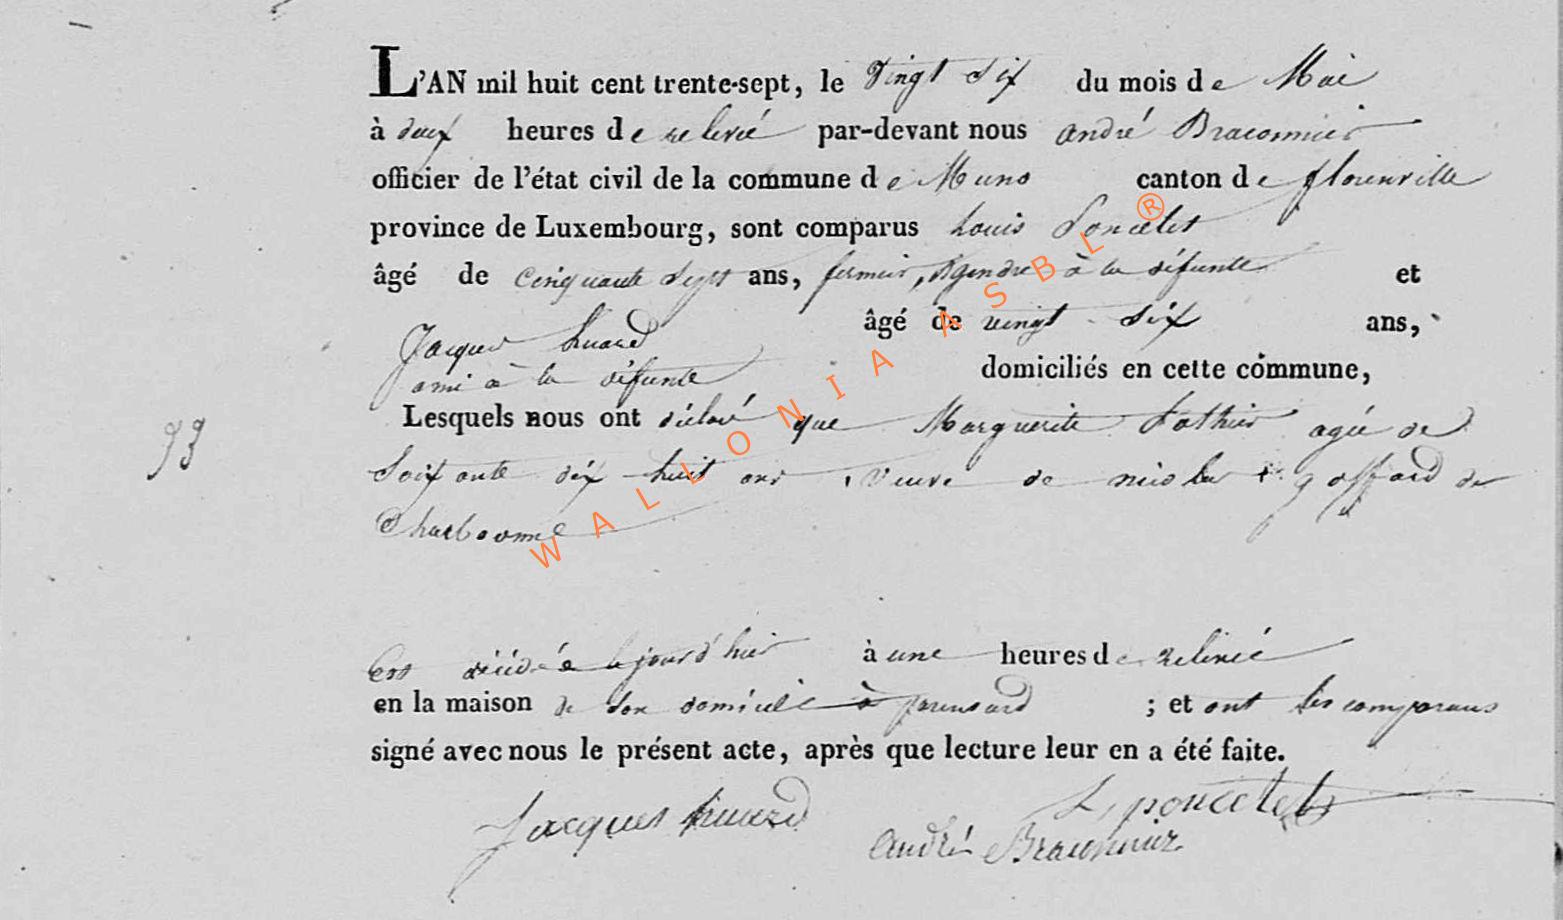 L'AN mil huit cent trente-sept, le vingt six du mois de Mai
à deux heures de relevée par-devant nous andré Braconnier
officier de l'état civil de la commune de Muno canton de florenville
province de Luxembourg, sont comparus Louis Poncelet
âgé de cinquante sept ans, fermier, gendre à la défunte et
Jacques huard âgé de vingt six ans,
ami à la défunte domiciliés en cette commune,
Lesquels nous ont déclaré que Marguerite agée de
93 soixante dix huit ans, veuve de goffard de
Est décédée le jourd'hier à une heures de relevée
en la maison de son domicile à ; et ont les comparans
signé avec nous le présent acte, après que lecture leur en a été faite.
Jacques huard L, poncelet
andré Braconnier
WALLONIA ASBL ®